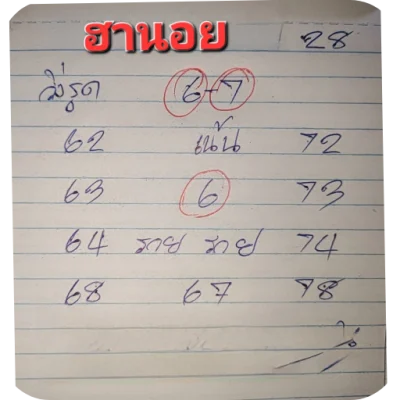 ฮานอย 28
วิ่งรูด 6-7
62 เน้น 72
63 6 73
64 รวย รวย 74
68 67 78